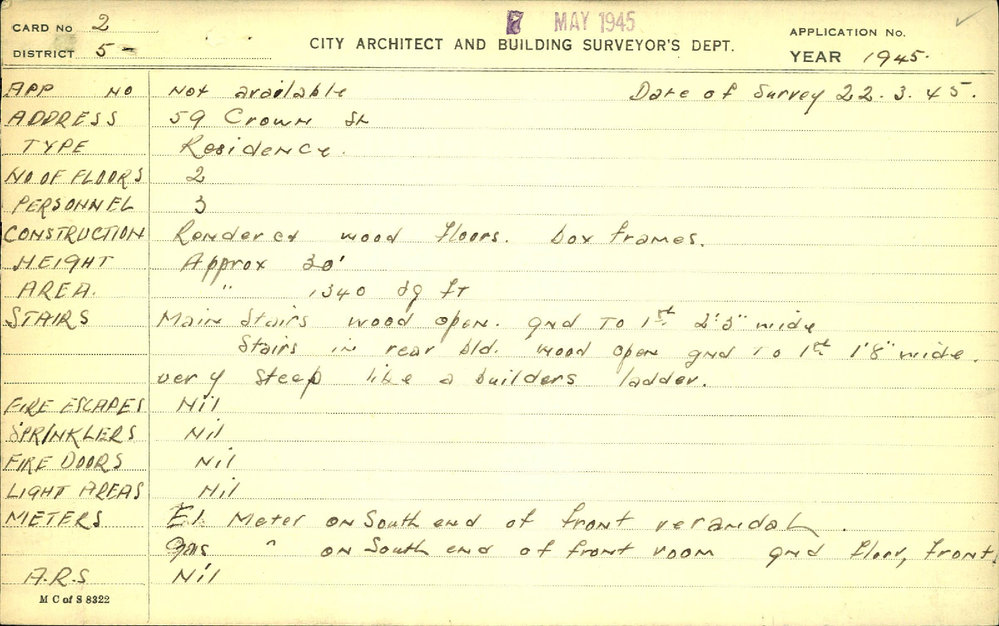 CARD No 2
7 MAY 1945
APPLICATION No.
DISTRICT 5 -
CITY ARCHITECT AND BUILDING SURVEYOR'S DEPT.
YEAR 1945.
APP NO Not available Date of Survey 22.3.45.
ADDRESS 59 Crown St
TYPE Residence.
NO OF FLOORS 2
PERSONNEL 3
CONSTRUCTION Rendered wood floors. box frames.
HEIGHT Approx 30'
AREA. " 1340 sq ft
STAIRS Main Stairs wood open. gnd To 1st 2'3" wide
Stairs in rear bld. wood open gnd To 1st 1'8" wide.
very steep like a builders ladder.
FIRE ESCAPES Nil
SPRINKLERS Nil
FIRE DOORS Nil
LIGHT AREAS Nil
METERS El. Meter on South end of front verandah.
Gas " on South end of front room gnd floor, front.
A.R.S Nil
M C of S 8322